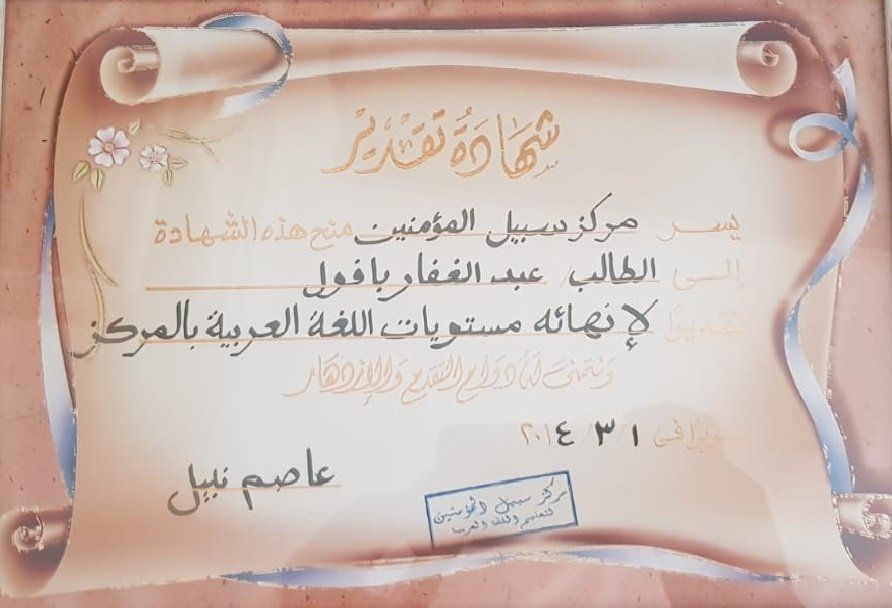 شهادة تقدير
يسر مركز سبيل المؤمنين منح هذه الشهادة
إلى الطالب / عبد الغفار بافول
تقديرًا لإنهائه مستويات اللغة العربية بالمركز
ونتمنى له دوام التقدم والإزدهار
تحريرا في ١ / ٣ / ٢٠١٤
عاصم نبيل
مركز سبيل المؤمنين
لتعليم اللغة العربية